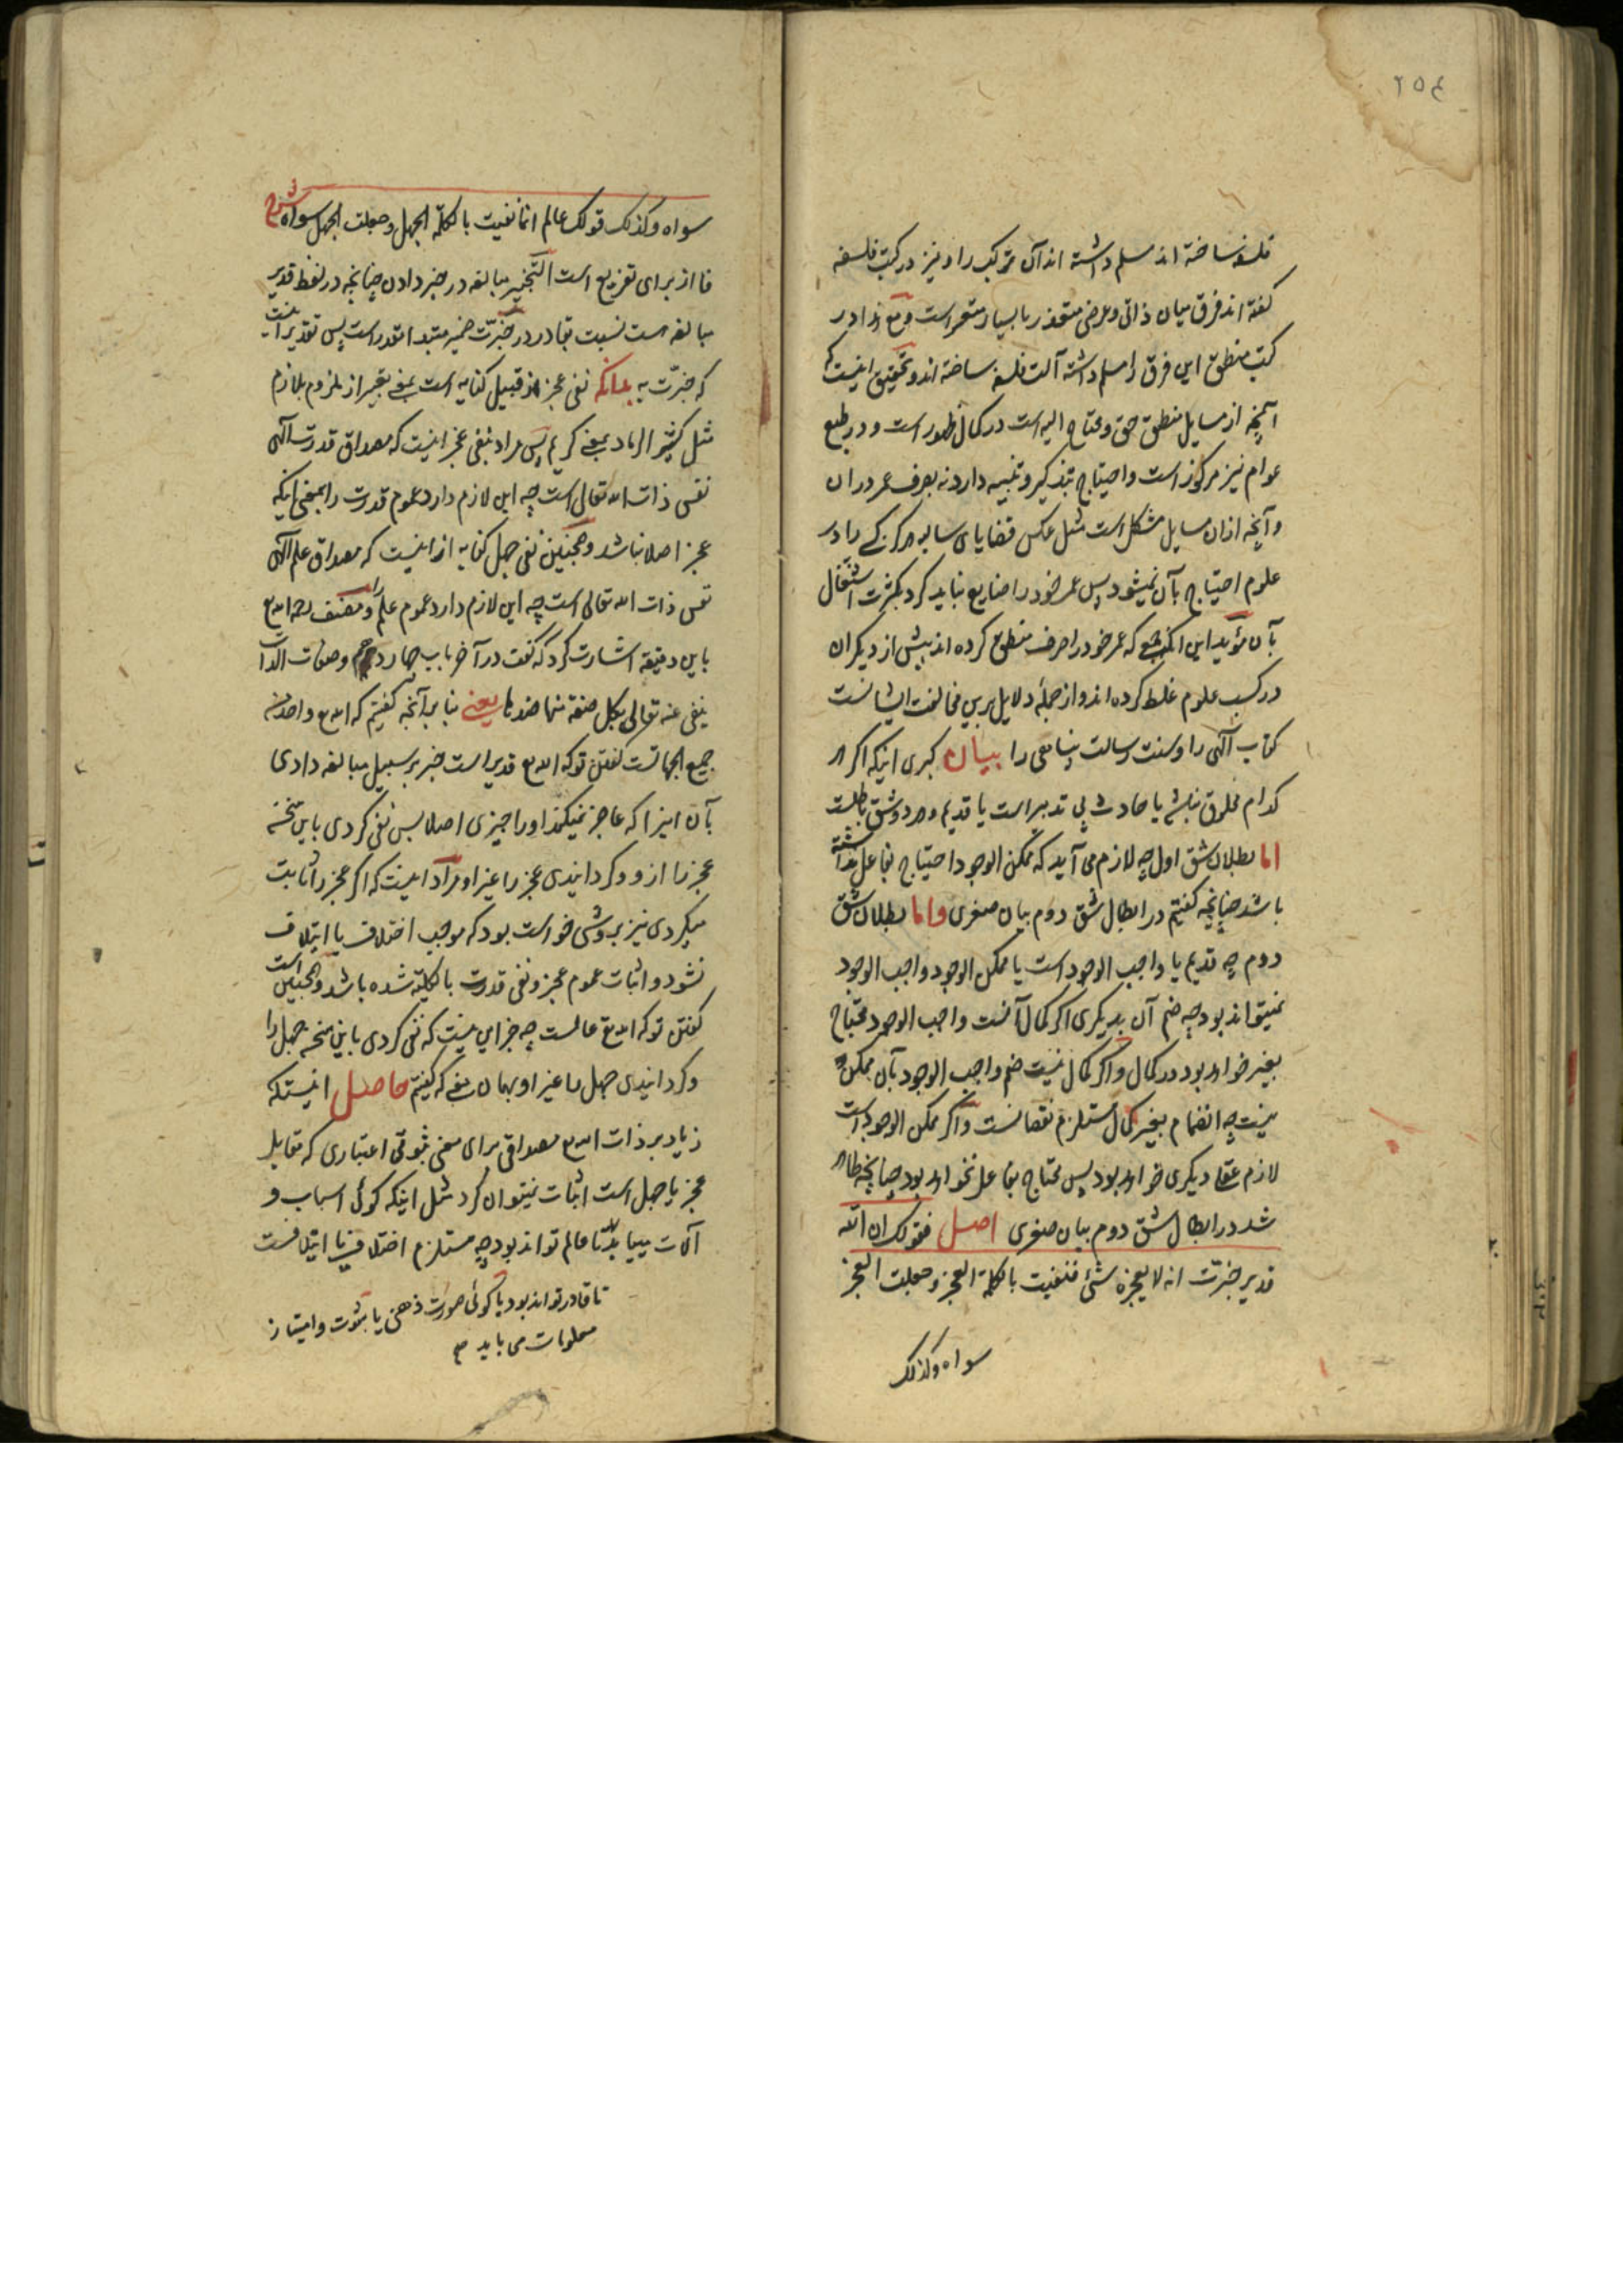 ٢٥٤
فلسفه ساخته اند مسلم داشته اند آن ترکب را و نیز در کتب فلسفه
گفته اند فرق میان ذاتی و عرضی متعذر یا بسیار متعسر است و مع هذا در
کتب منطق این فرق را مسلم داشته آلت فلسفه ساخته اند و تحقیق اینست که
آنچه از مسایل منطق حق و محتاج الیه است در کمال ظهور است و در طبع
عوام نیز مرکوز است و احتیاج بتذکیر و تنبیه دارد نه بصرف عمر در ان
و آنچه ازان مسایل مشکل است مثل عکس قضایای سالبه مرکبه کسی را در
علوم احتیاج بآن نمیشود پس عمر خود را ضایع نباید کرد بکثرت اشتغال
بآن مؤید این آنکه جمعی که عمر خود را صرف منطق کرده اند بیش از دیگران
در کسب علوم غلط کرده اند و از جملهٔ دلایل بر این مخالفت ایشانست
کتاب الهی را و سنت رسالت پناهی را بیان کبری اینکه اگر هر
کدام مخلوق نباشد یا حادث بی تدبیر است یا قدیم و هر دو شق باطلست
اما بطلان شق اول چه لازم می آید که ممکن الوجود احتیاج بفاعل نداشته
باشد چنانچه گفتیم در ابطال شق دوم بیان صغری و اما بطلان شق
دوم چه قدیم یا واجب الوجود است یا ممکن الوجود و واجب الوجود
نمیتواند بود چه ضم آن بدیگری اگر کمال آنست واجب الوجود محتاج
بغیر خواهد بود در کمال و اگر کمال نیست ضم واجب الوجود بآن ممکن
نیست چه انضمام بغیر کمال مستلزم نقصانست و اگر ممکن الوجود است
لازم عقلی دیگری خواهد بود پس محتاج بفاعل نخواهد بود چنانچه ظاهر
شد در ابطال شق دوم بیان صغری اصل فقولک ان الله
قدیر خبّرت انه لا یعجزه شیء فنفیت بالکلمة العجز و جعلت العجز
سواه و کذلک
سواه و کذلک قولک عالم انما نفیت بالکلمة الجهل و جعلت الجهل سواه شرح
فا از برای تفریع است التخبیر مبالغه در خبر دادن چنانچه در لفظ قدیر
مبالغه هست نسبت بقادر در خبّرت ضمیر مبتدا مقدر است پس تقدیر اینست
که خبّرت به بدانکه نفی عجز از قبیل کنایه است یعنی تعبیر از ملزوم بلازم
مثل کثیر الرماد بمعنی کریم پس مراد بنفی عجز اینست که مصداق قدرت الهی
نفس ذات الله تعالی است چه این لازم دارد عموم قدرت را بمعنی اینکه
عجز اصلا نباشد و همچنین نفی جهل کنایه از اینست که مصداق علم الهی
نفس ذات الله تعالی است چه این لازم دارد عموم علم را و مصنف رحمه الله تع
باین دقیقه اشارت کرد که گفت در آخر باب چهاردهم و صفات الذات
ینفی عنه تعالی بکل صفة منها ضدها یعنی بنا بر آنچه گفتیم که الله تع واحد من
جمیع الجهاتست گفتن تو که الله تع قدیر است خبر بر سبیل مبالغه دادی
بآن اینرا که عاجز نمیکند او را چیزی اصلا پس نفی کردی باین سخن
عجز را از او و گردانیدی عجز را غیر او مراد اینست که اگر عجز را ثابت
میکردی نیز بروشی خواست بود که موجب اختلاف یا ایتلاف
نشود و اثبات عموم عجز و نفی قدرت بالکلیه شده باشد و همچنین است
گفتن تو که الله تع عالمست چه جز این نیست که نفی کردی باین سخن جهل را
و گردانیدی جهل را غیر او بهمان معنی که گفتیم حاصل اینستکه
زیاد بر ذات الله تع مصداقی برای معنی ثبوتی اعتباری که مقابل
عجز یا جهل است اثبات نمیتوان کرد مثل اینکه گوئی اسباب و
آلات میباید تا عالم تواند بود چه مستلزم اختلاف یا ایتلافست
تا قادر تواند بود یا گوئی صورت ذهنی یا ثبوت و امتیاز
معلومات می باید